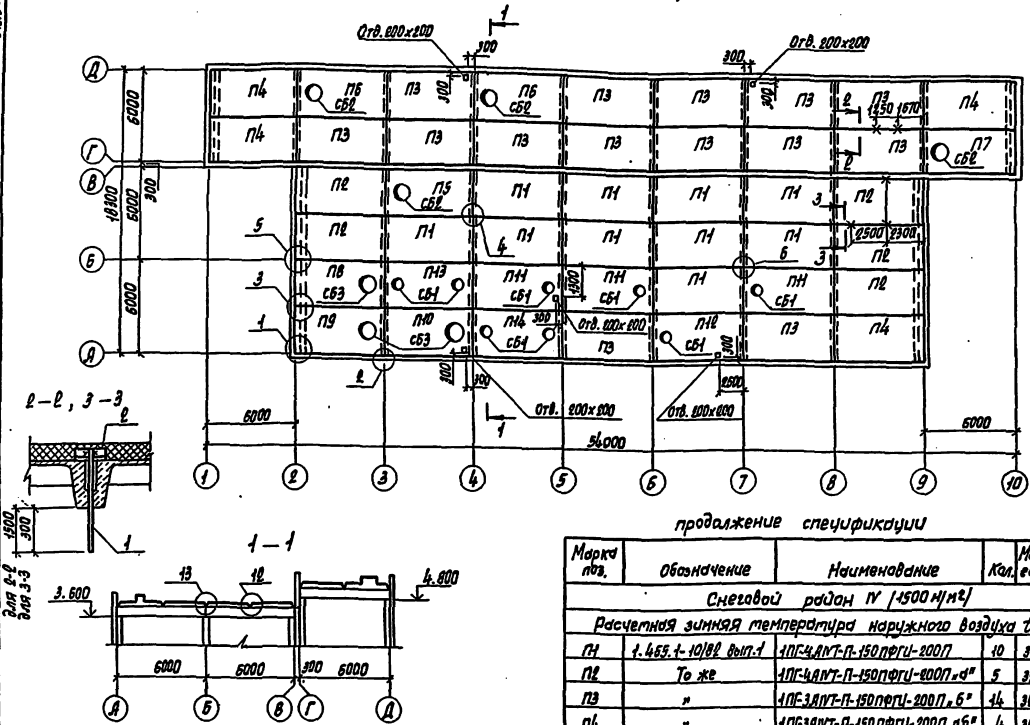 1
Отв. 200х200
300
Отв. 200х200
300
Д
П4
П6
СБ2
П3
300
П6
СБ2
П3
П3
300
П3
2
П3
1250
1670
П4
6000
П4
П3
П3
П3
П3
П3
П3
2
П3
П7
СБ2
Г
В
300
18300
6000
П2
П5
СБ2
П1
П1
П1
П1
3
П2
5
П2
П1
П1
П1
П1
П1
3
2500
2300
4
6
П2
Б
3
П8
СБ3
П13
СБ1
П11
СБ1
1300
П11
СБ1
П1
П11
СБ1
П2
6000
1
П9
П10
СБ3
П14
СБ1
300
Отв. 200х200
П3
П12
СБ1
300
П3
П4
А
2
300
300
2500
Отв. 200х200
1
Отв. 200х200
6000
6000
54000
1 2 3 4 5 6 7 8 9 10
2-2, 3-3
2
1500
300
1
для 2-2
для 3-3
1-1
13
12
3.600
4.800
6000
6000
300
6000
А
Б
В
Г
Д
продолжение спецификации
Марка поз.
Обозначение
Наименование
Кол.
Снеговой район IV /1500 Н/м²/
Расчетная зимняя температура наружного воздуха
П1 1.465.1-10/82 вып.1 1ПГ-4АIVТ-П-150ПФГИ-200П 10
П2 То же 1ПГ-4АIVТ-П-150ПФГИ-200П„а" 5
П3 " 1ПГ-3АIVТ-П-150ПФГИ-200П„б" 14
П4 " 4